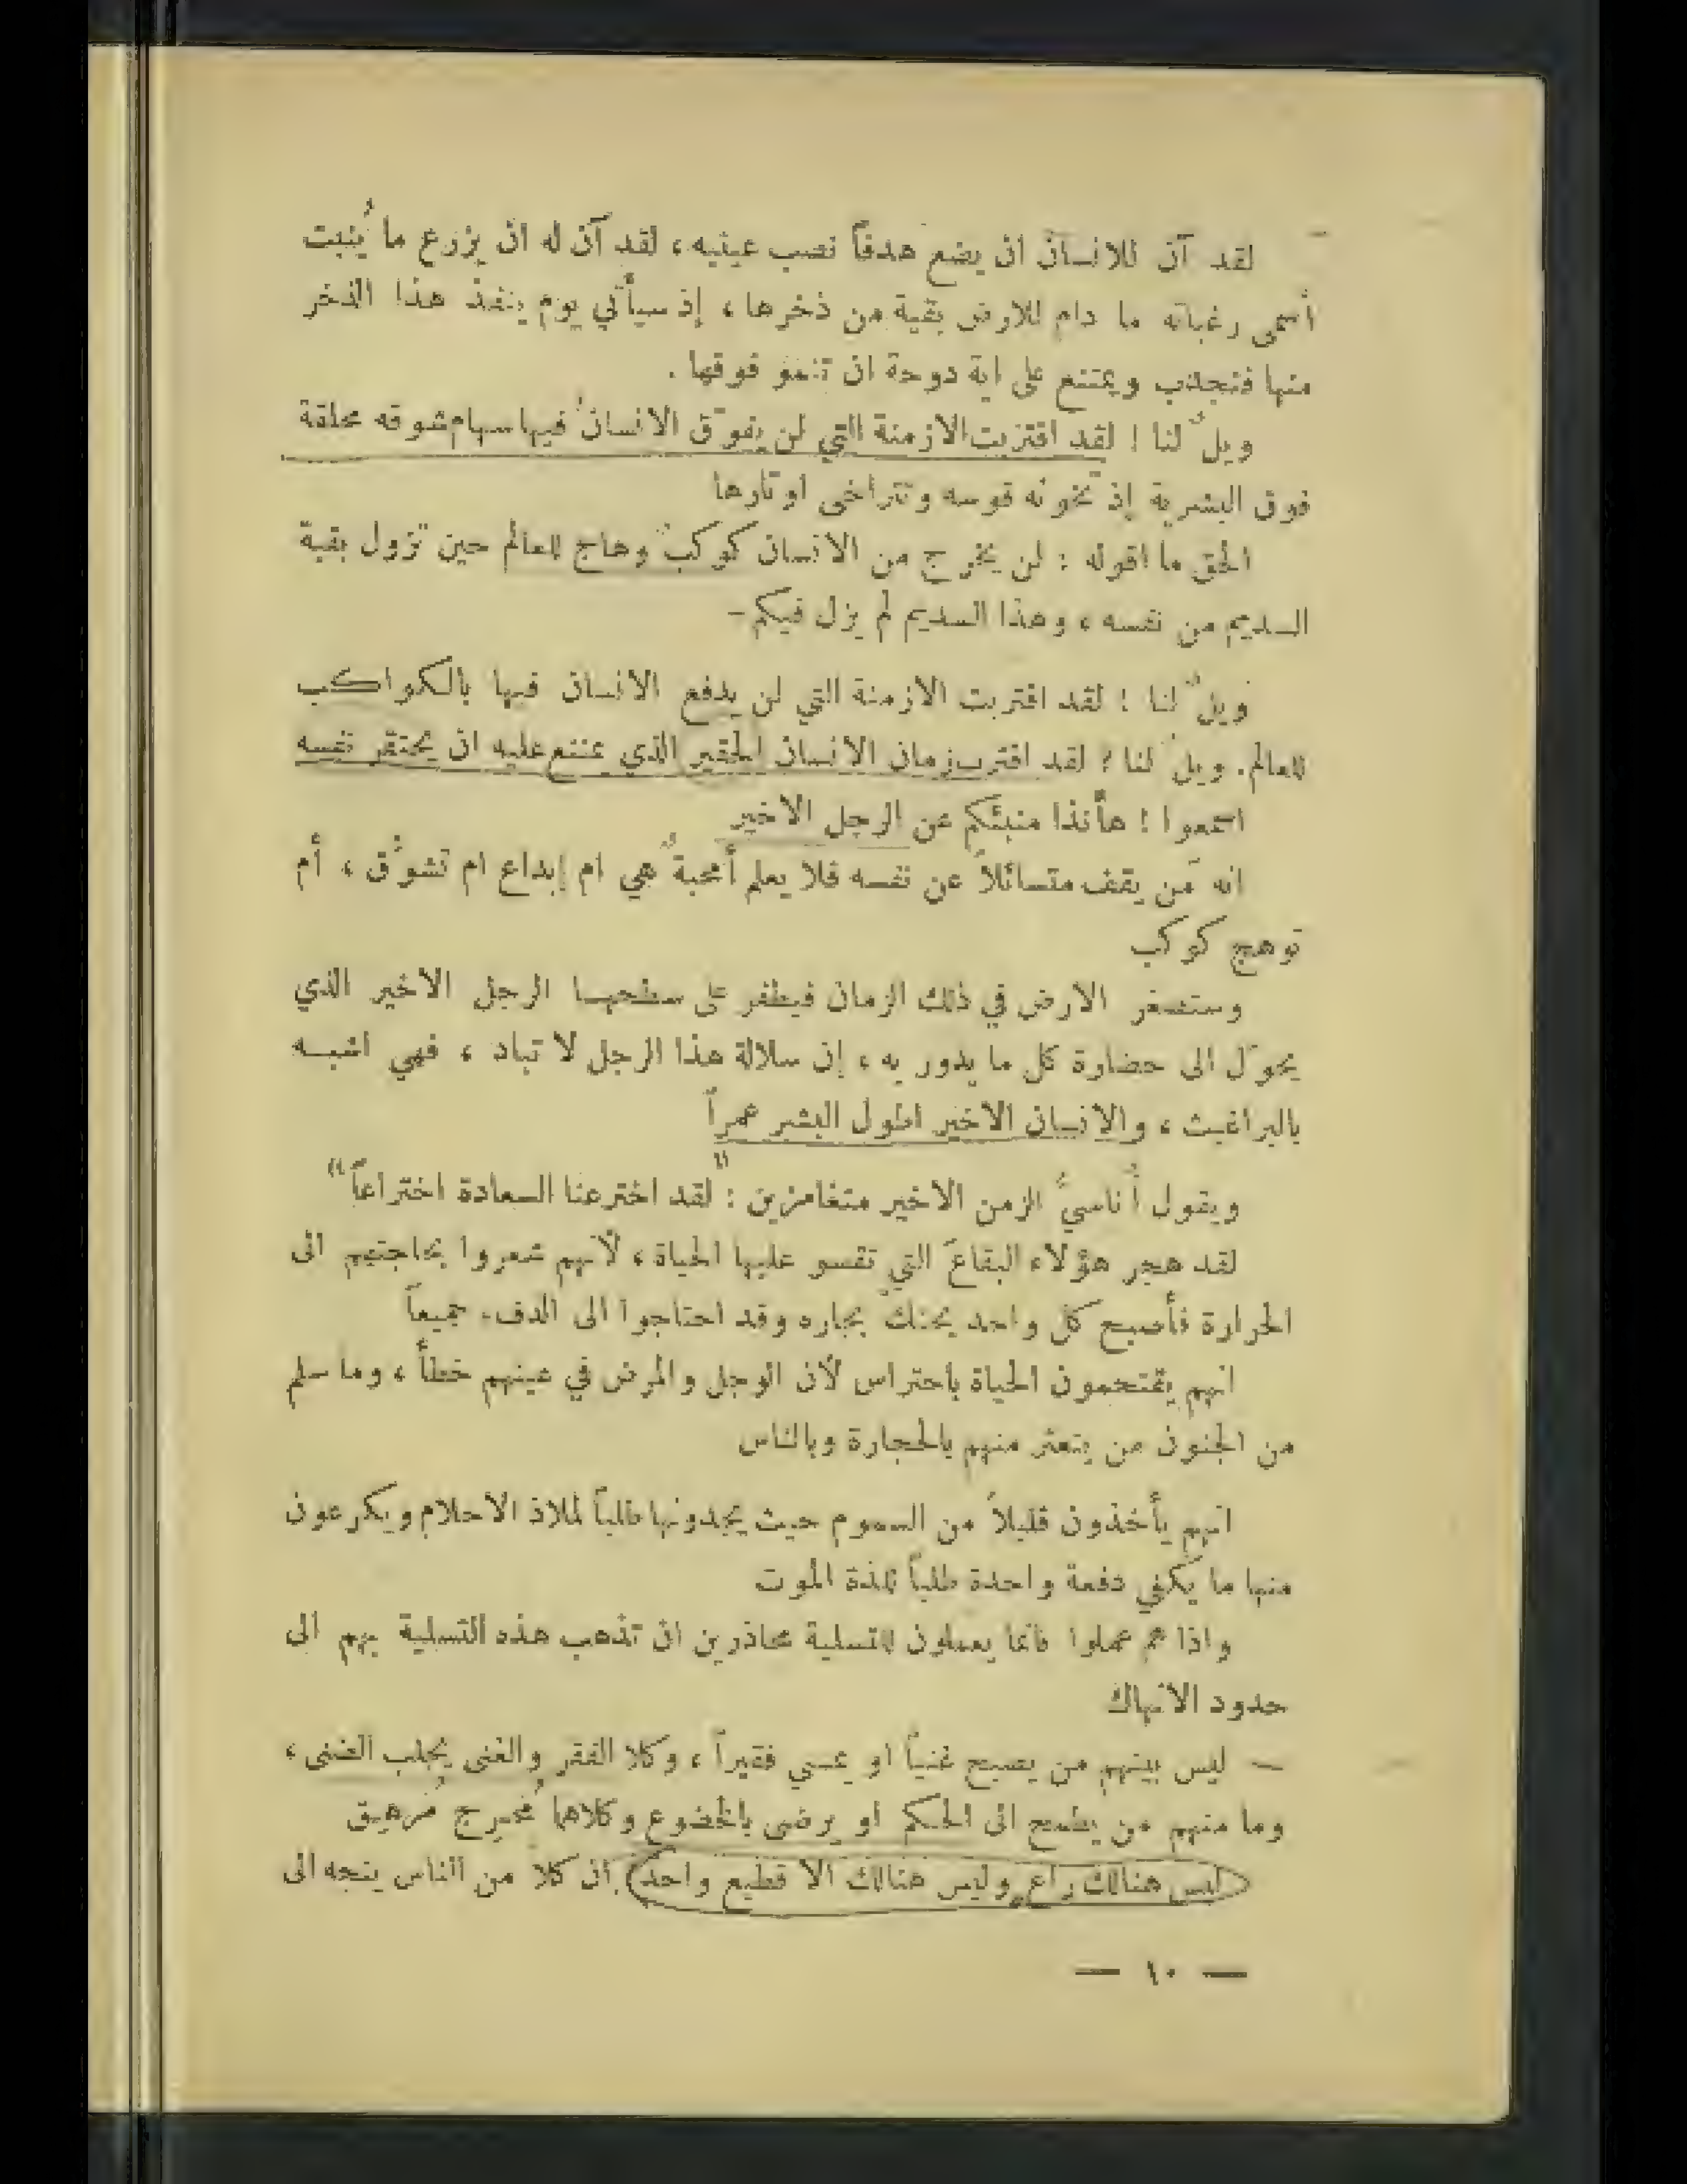 لقد آن للانسان ان يضع هدفاً نصب عينيه، لقد آن له ان يزرع ما يُنبت
أسمى رغباته ما دام للارض بقية من ذخرها، إذ سيأتي يوم ينفد هذا الذخر
منها فتجدب ويمتنع على اية دوحة ان تنمو فوقها.
ويلٌ لنا! لقد اقتربت الازمنة التي لن يفوّق الانسانُ فيها سهام شوقه محلقة
فوق البشرية إذ تخونه قوسه وتتراخى اوتارها
الحق ما اقوله: لن يخرج من الانسان كوكبٌ وهاج للعالم حين تزول بقية
السديم من نفسه، وهذا السديم لم يزل فيكم-
ويلٌ لنا! لقد اقتربت الازمنة التي لن يدفع الانسان فيها بالكواكب
للعالم. ويلٌ لنا! لقد اقترب زمان الانسان الحقير الذي يمتنع عليه ان يحتقر نفسه
اسمعوا! هأنذا منبئكم عن الرجل الاخير
انه مَن يقف متسائلاً عن نفسه فلا يعلم أمحبةٌ هي ام إبداع ام تشوّق، أم
توهج كوكب
وستصغر الارض في ذلك الزمان فيطفر على سطحها الرجل الاخير الذي
يحوّل الى حضارة كل ما يدور به، إن سلالة هذا الرجل لا تباد، فهي اشبه
بالبراغيث، والانسان الاخير اطول البشر عمراً
ويقول أُناسيُّ الزمن الاخير متغامزين: "لقد اخترعنا السعادة اختراعاً"
لقد هجر هؤلاء البقاعَ التي تقسو عليها الحياة، لأنهم شعروا بحاجتهم الى
الحرارة فأصبح كل واحد يحتك بجاره وقد احتاجوا الى الدفء جميعاً
انهم يقتحمون الحياة باحتراس لأن الوجل والمرض في عينهم خطأ، وما سلم
من الجنون من يتعثر منهم بالحجارة وبالناس
انهم يأخذون قليلاً من السموم حيث يجدونها طلباً لملاذ الاحلام ويكرعون
منها ما يكفي دفعة واحدة طلباً للذة الموت
واذا هم عملوا فانما يعملون للتسلية محاذرين ان تذهب هذه التسلية بهم الى
حدود الانهاك
— ليس بينهم من يصبح غنياً او يمسي فقيراً، وكلا الفقر والغنى يجلب الضنى،
وما منهم من يطمح الى الحكم او يرضى بالخضوع وكلاهما مُحرِج مُرهِق
ليس هنالك راع وليس هنالك الا قطيع واحد. ان كلاً من الناس يتجه الى
— ١٠ —